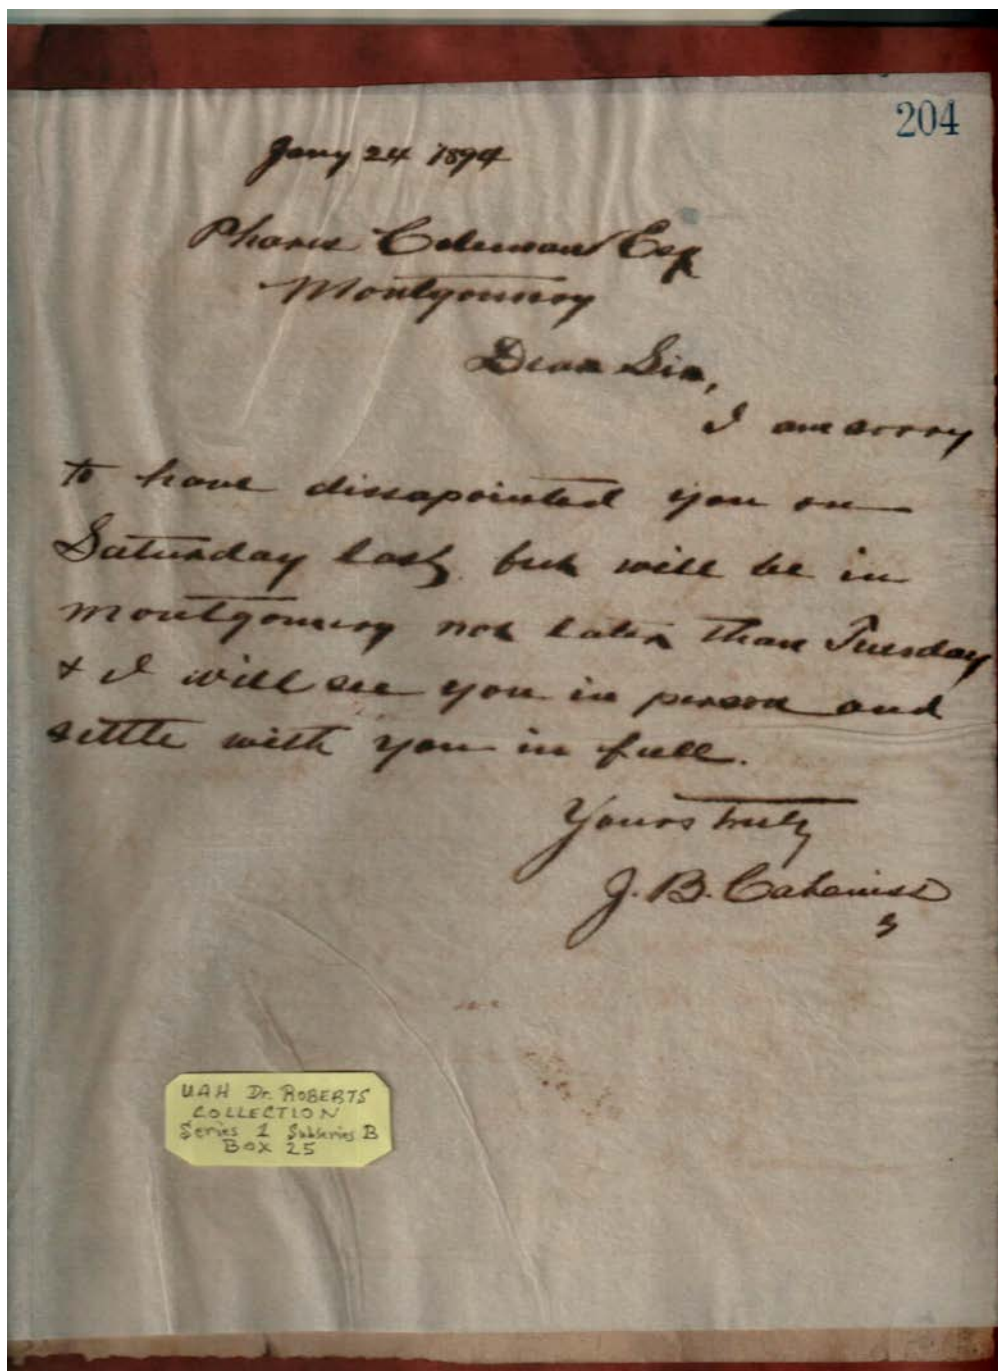 204
Jany 24 1894
Phares Coleman Esq
Montgomery
Dear Sir,
I am sorry
to have dissapointed you on
Saturday last, but will be in
Montgomery not later than Tuesday
& I will see you in person and
settle with you in full.
Yours truly
J. B. Cabaniss
UAH Dr. ROBERTS
COLLECTION
Series 1 Subseries B
BOX 25